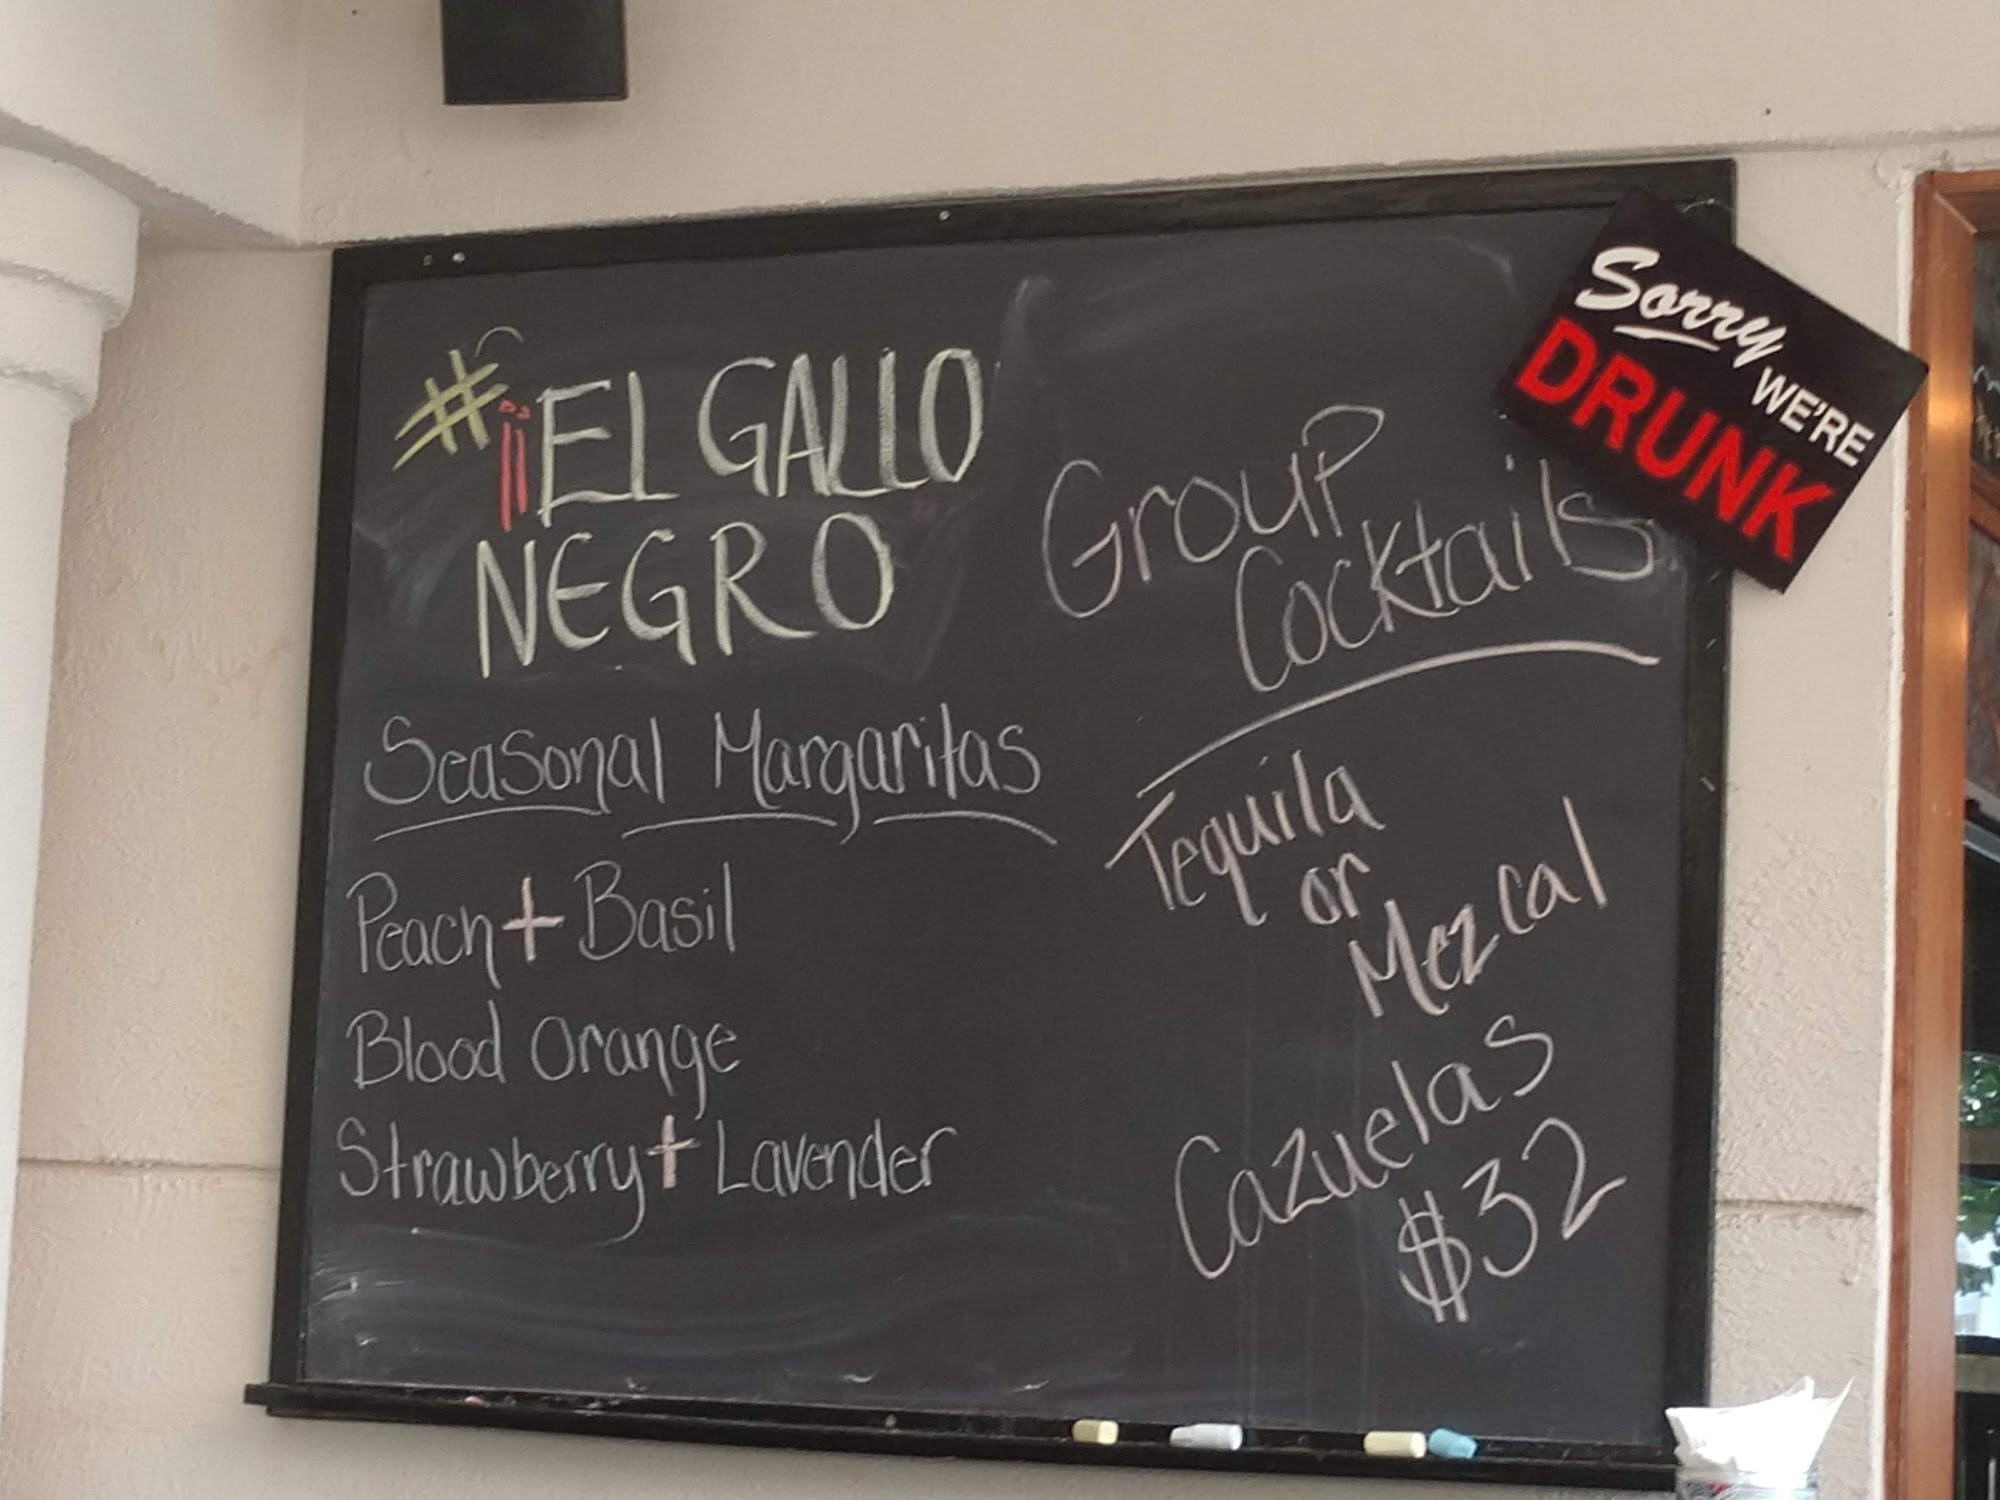 # ¡¡EL GALLO
NEGRO
Seasonal Margaritas
Peach + Basil
Blood Orange
Strawberry + Lavender
Group
Cocktails
Tequila
or
Mezcal
Cazuelas
$32
Sorry
WE'RE
DRUNK